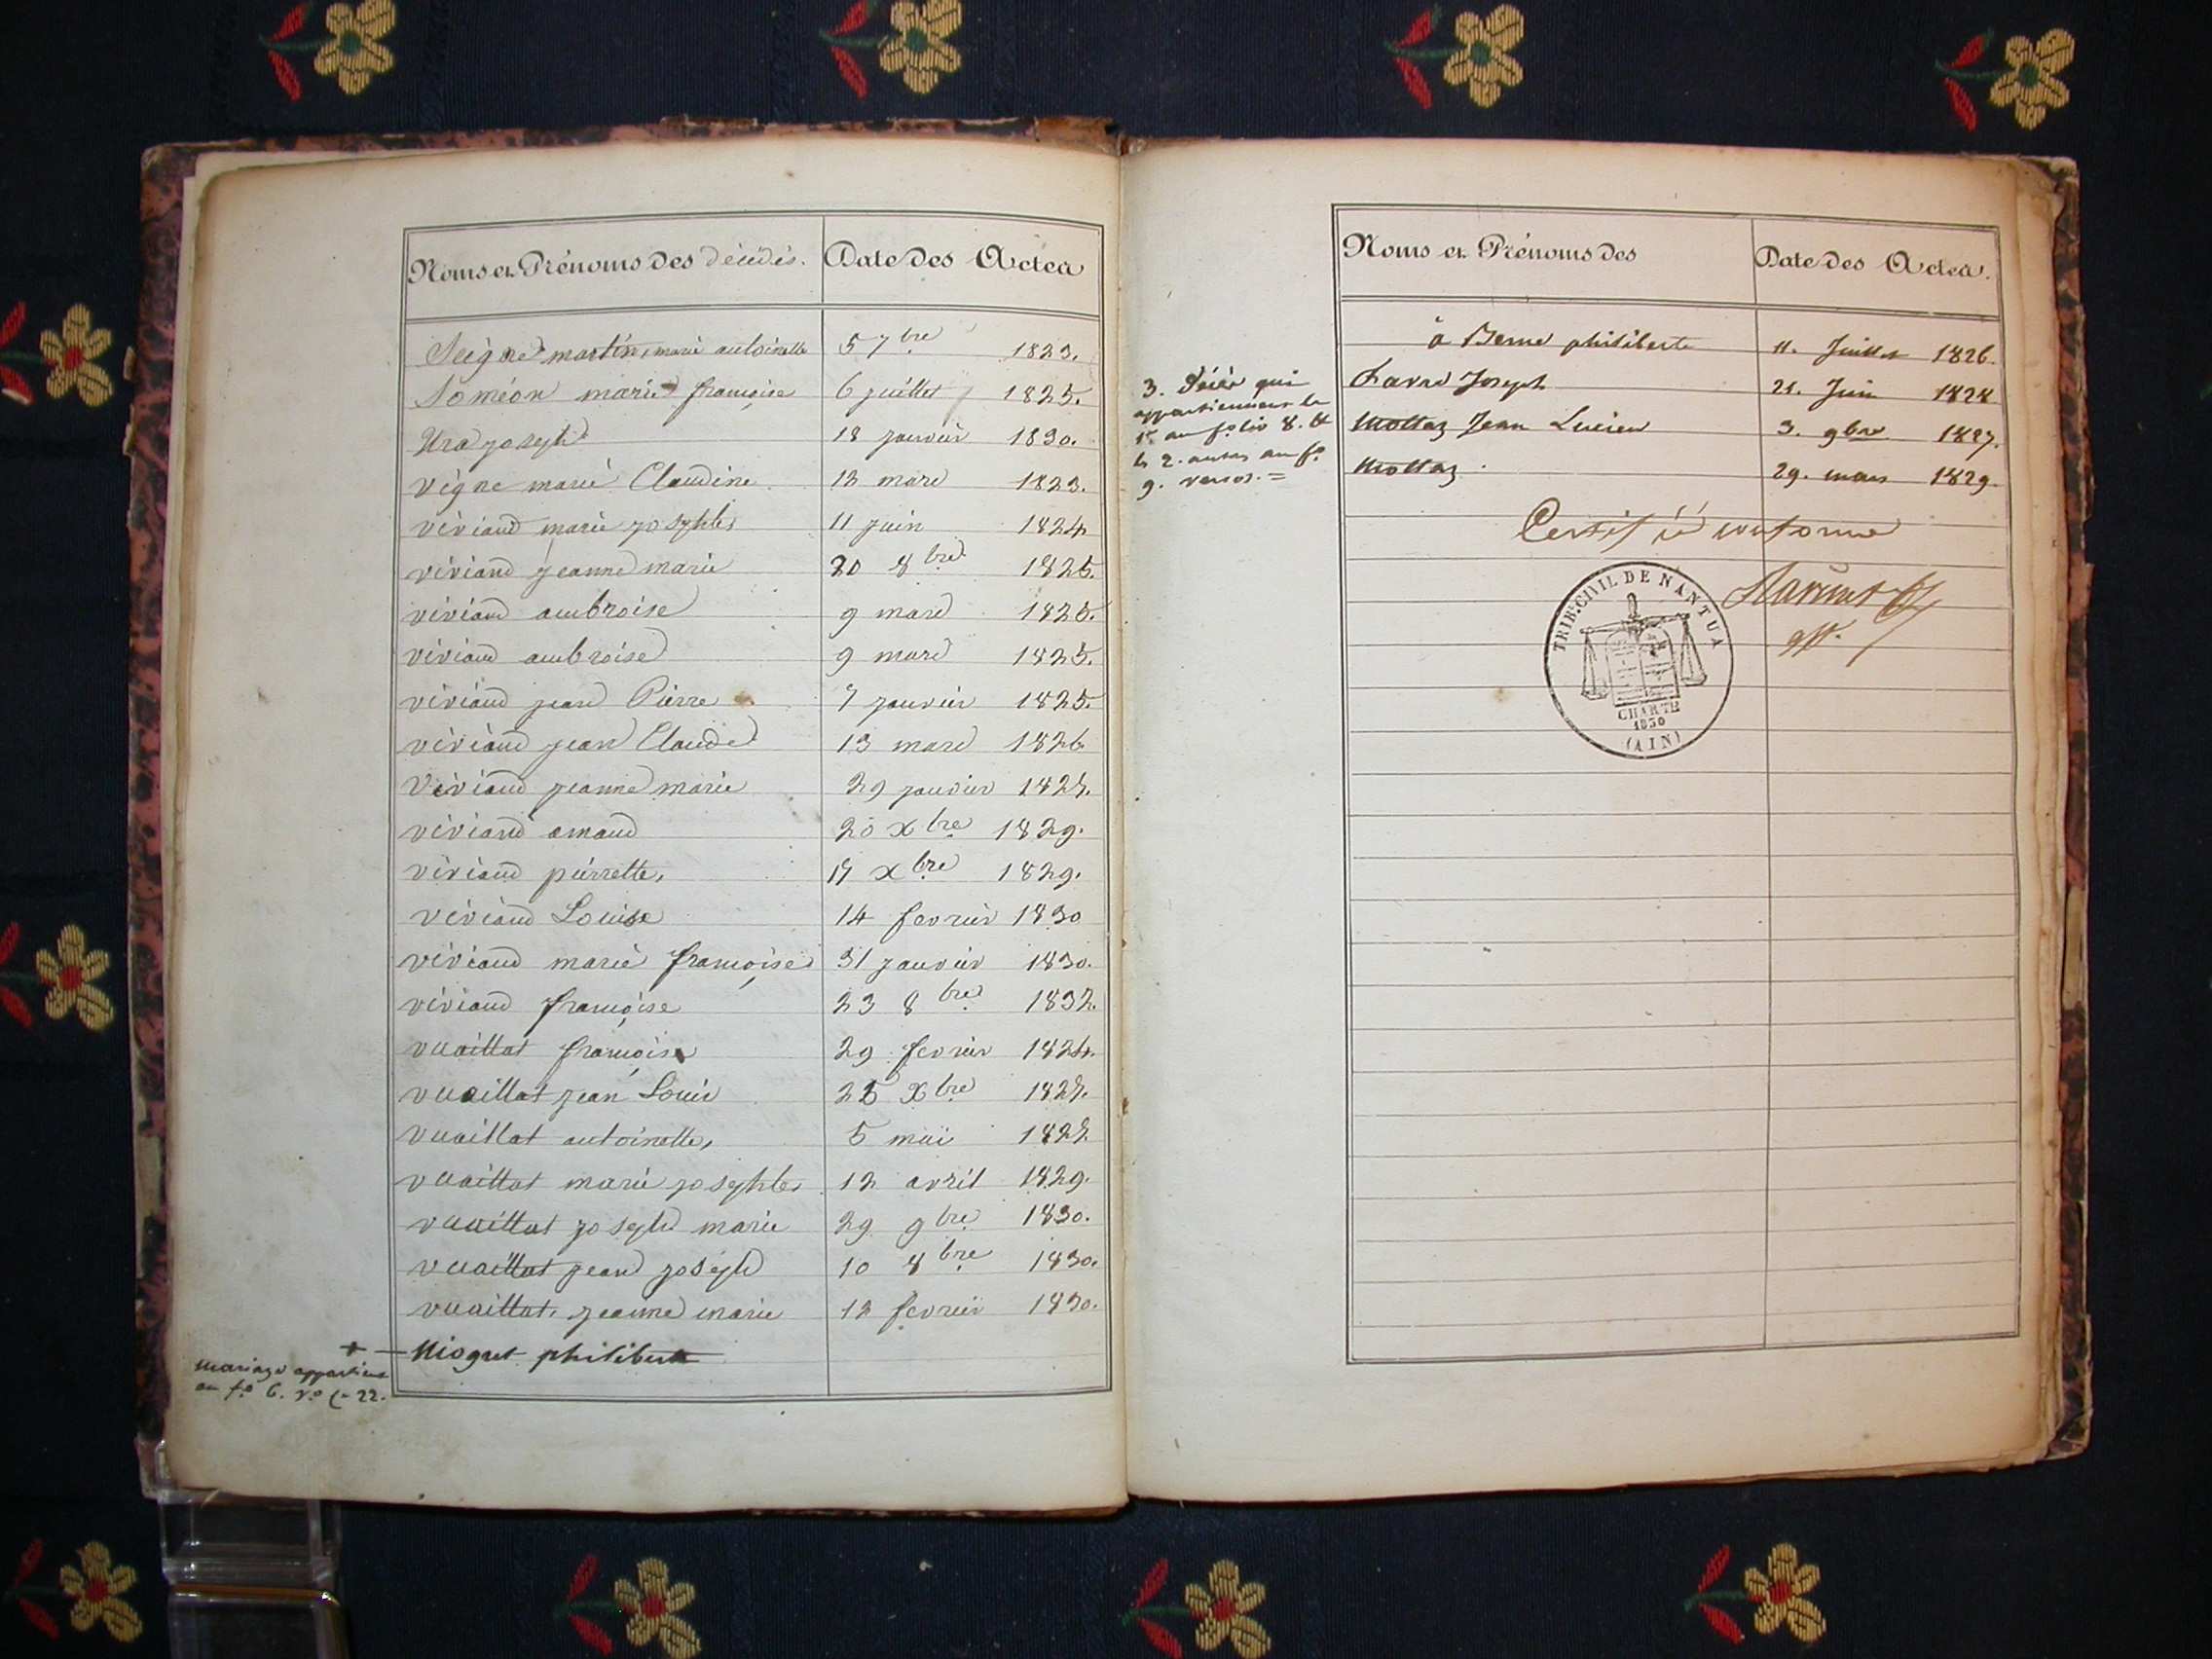 Noms et Prénoms des décédés. Date des Actes
Seigne martin, marie antoinette 5 7bre 1823.
Soméon marie françoise 6 juillet 1825.
Ura joseph 18 janvier 1830.
végne marie Claudine 12 mars 1823.
viviand marie josephte 11 juin 1824
viviand jeanne marie 20 8bre 1825.
viviand ambroise 9 mars 1825.
viviand ambroise 9 mars 1825.
viviand jean Pierre 7 janvier 1825.
viviand jean Claude 13 mars 1826
Viviand jeanne marie 29 janvier 1827.
viviand amand 20 xbre 1829.
viviand pierrette, 17 xbre 1829.
viviand Louise 14 fevrier 1830
viviand marie françoise 31 janvier 1830.
viviand françoise 23 8bre 1832.
vuaillat françoise 29 fevrier 1824.
vuaillat jean Louis 25 Xbre 1827.
vuaillat antoinette, 5 mai 1827.
vuaillat marie josephte 12 avril 1829.
vuaillat joseph marie 29 9bre 1830.
vuaillat jean joseph 10 8bre 1830.
vuaillat, jeanne marie 12 fevrier 1830.
+ Niogret philiberte
mariage appartient
au fo 6. vo 22.
Noms et Prénoms des Date des Actes.
à Berne philiberte 11. Juillet 1826.
3. Décès qui
appartiennent le
1er au folio 8. &
les 2. autres au fo
9. verso. =
Joseph 21. Juin 1828
Mottaz Jean Lucien 3. 9bre 1827.
Mottaz 29. mars 1829.
Certifié conforme
TRIB. CIVIL DE NANTUA
CHARTE
1830
(AIN)